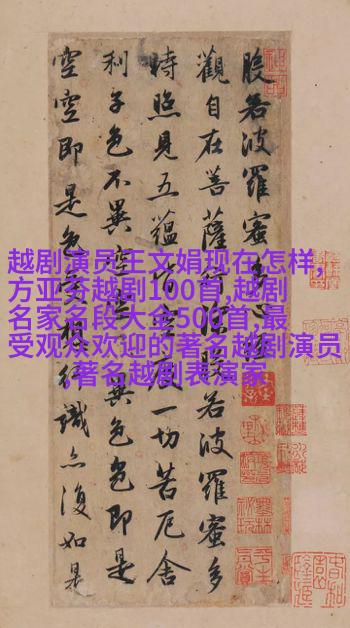 般若波羅蜜多心經
觀自在菩薩行深般若波羅蜜多
時照見五蘊皆空度一切苦厄舍
利子色不異空空不異色色即是
空空即是色受想行識亦復如是
越剧演员王文娟现在怎样,
方亚芬越剧100首,越剧
名家名段大全500首,最
受观众欢迎的著名越剧演员
,著名越剧表演家